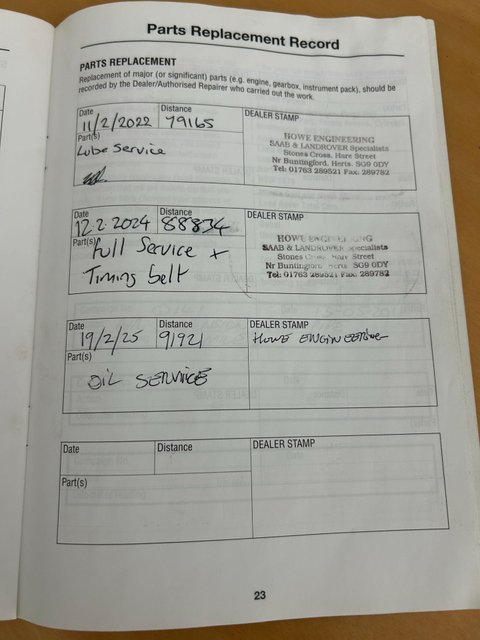 Parts Replacement Record
PARTS REPLACEMENT
Replacement of major (or significant) parts (e.g. engine, gearbox, instrument pack), should be
recorded by the Dealer/Authorised Repairer who carried out the work.
Date
11/2/2022
Distance
79165
Part(s)
Lube Service
DEALER STAMP
HOWE ENGINEERING
SAAB & LANDROVER Specialists
Stones Cross, Hare Street
Nr Buntingford, Herts. SG9 0DY
Tel: 01763 289521 Fax: 289782
Date
12.2.2024
Distance
88834
Part(s)
Full Service +
Timing belt
DEALER STAMP
HOWE ENGINEERING
SAAB & LANDROVER Specialists
Stones Cross, Hare Street
Nr Buntingford, Herts. SG9 0DY
Tel: 01763 289521 Fax: 289782
Date
19/2/25
Distance
91921
Part(s)
OIL SERVICE
DEALER STAMP
HOWE ENGINEERING
Date
Distance
Part(s)
DEALER STAMP
23